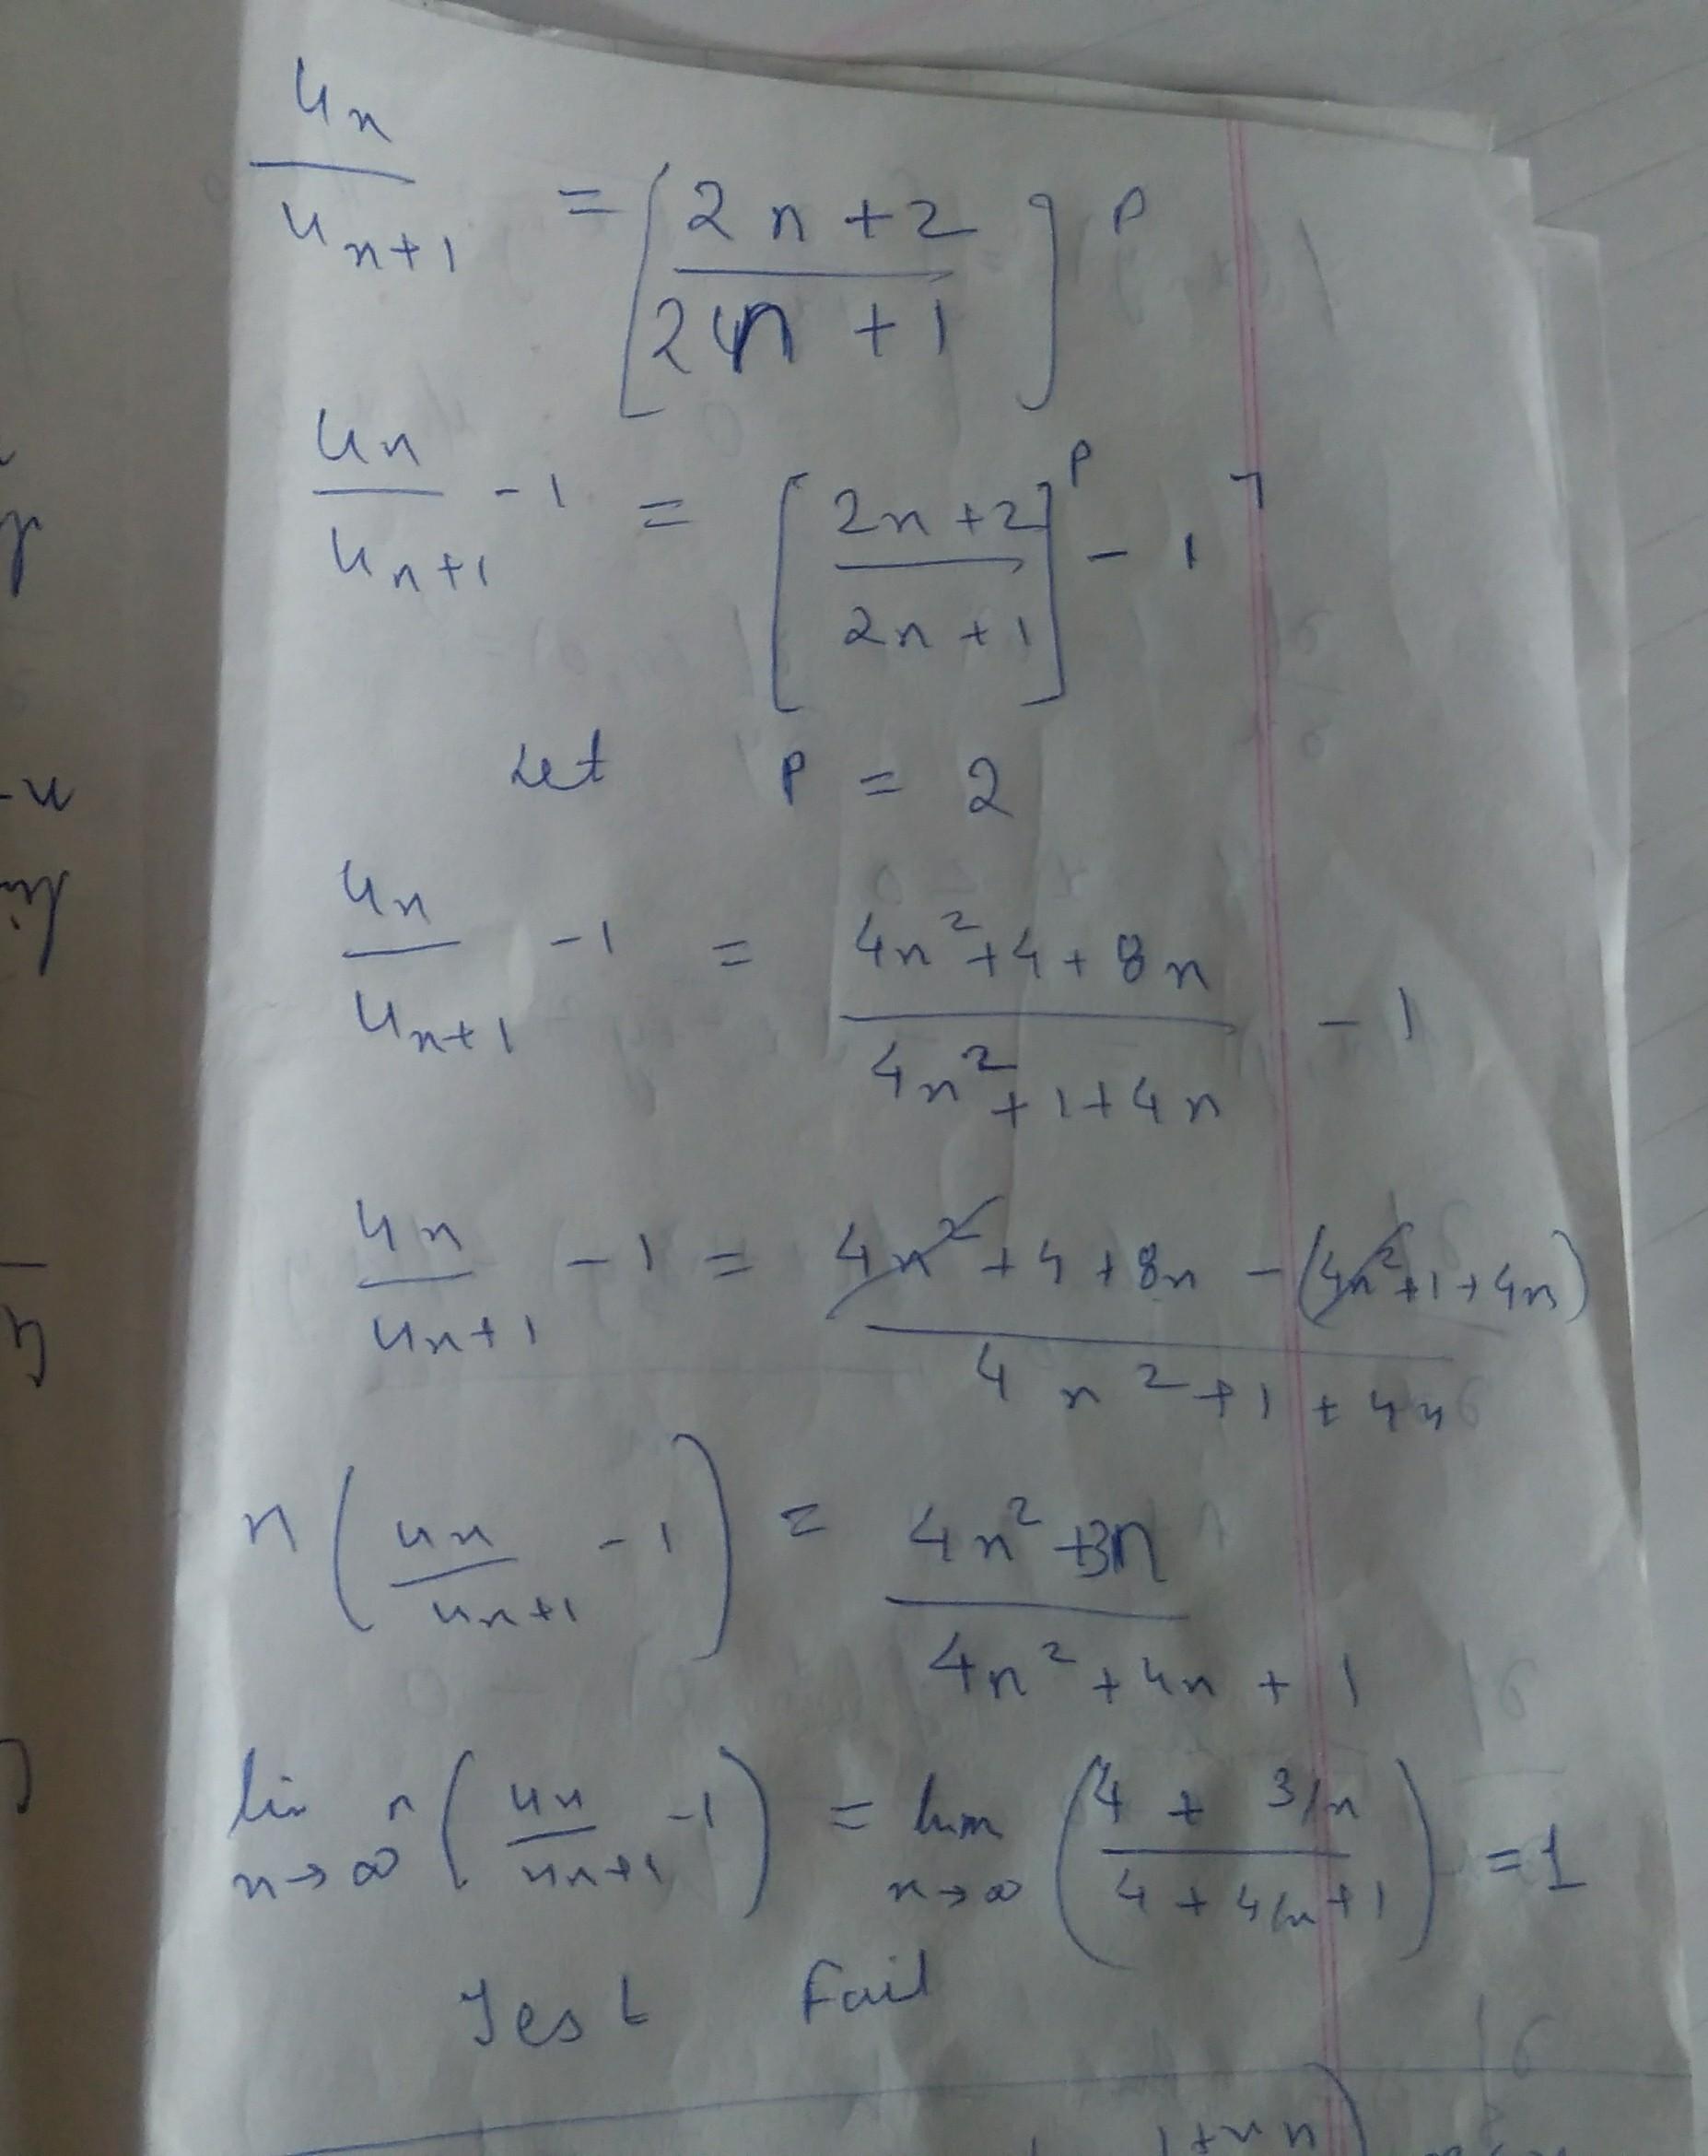 u_n / u_{n+1} = [ (2n+2) / (2n+1) ]^P
u_n / u_{n+1} - 1 = [ (2n+2) / (2n+1) ]^P - 1
Let P = 2
u_n / u_{n+1} - 1 = (4n²+4+8n) / (4n²+1+4n) - 1
u_n / u_{n+1} - 1 = (4n²+4+8n-(4n²+1+4n)) / (4n²+1+4n)
n ( u_n / u_{n+1} - 1 ) = (4n²+3n) / (4n²+4n+1)
lim n→∞ n ( u_n / u_{n+1} - 1 ) = lim n→∞ ( (4+3/n) / (4+4/n+1) ) = 1
Test Fail